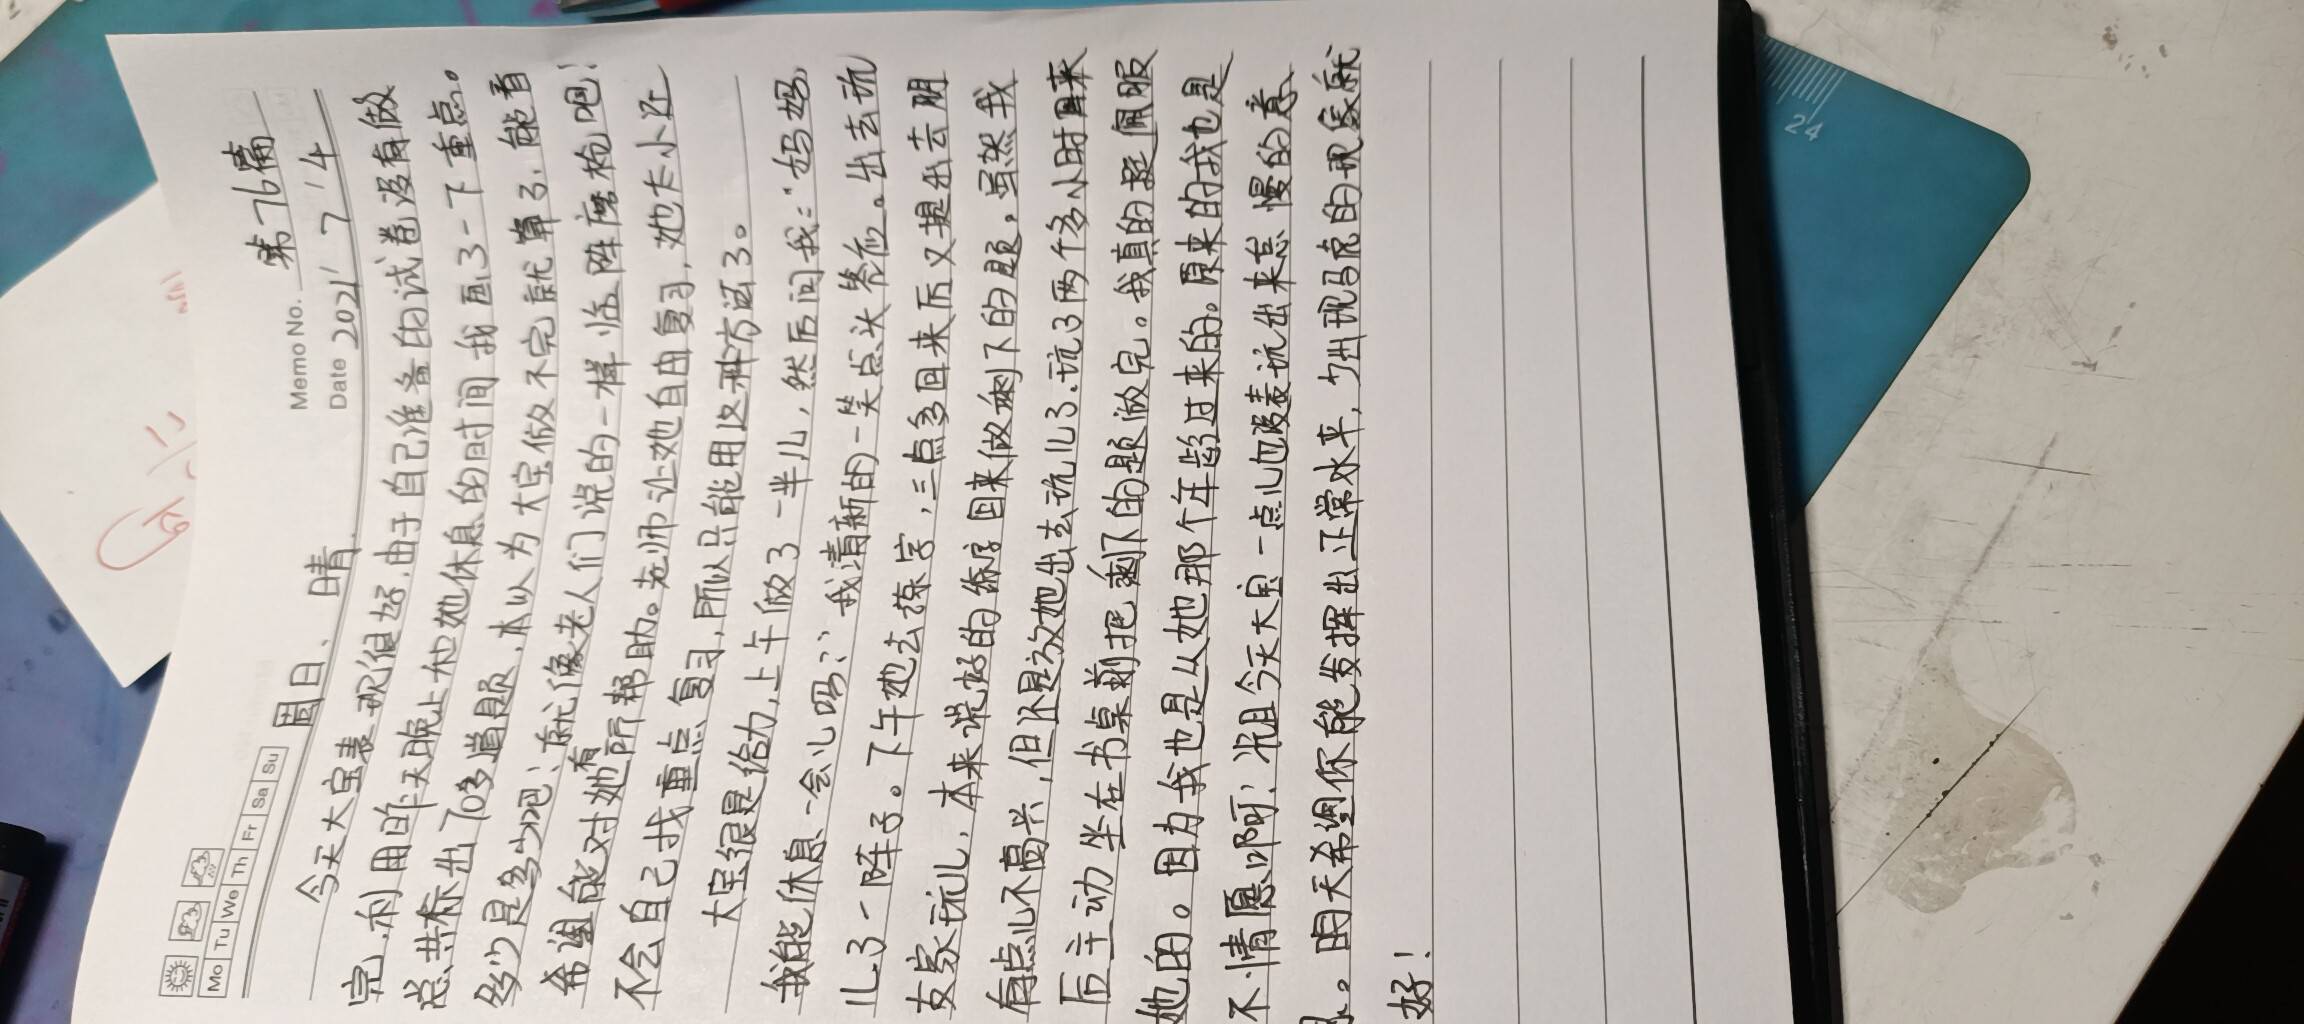 Mo Tu We Th Fr Sa Su
Memo No. 第76篇
Date 2021 / 7 / 4
周日、晴.
今天大宝表现很好,由于自己准备的试卷没有做
完,利用昨天晚上和她休息的时间我画了一下重点。
总共标出70多道题,本以为大宝做不完就算了,能看
多少是多少吧!就像老人们说的一样临阵磨枪吧!
希望能对她有所帮助。老师让她自由复习,她太小还
不会自己找重点复习,所以只能用这种方法了。
大宝很是给力,上午做了一半儿,然后问我:"妈妈,
我能休息一会儿吗?"我清新的一笑点头答应。出去玩
儿了一阵子。下午她去练字,三点多回来后又提出去朋
友家玩儿,本来说好的练字回来做剩下的题。虽然我
有点儿不高兴,但还是放她出去玩儿了.玩了两个多小时回来
后主动坐在书桌前把剩下的题做完。我真的挺佩服
她的。因为我也是从她那个年龄过来的。原来的我也是
不情愿啊!光且今天大宝一点儿也没表现出来怠慢的意
思。明天希望你能发挥出正常水平,别出现马虎的现象就
好!
24